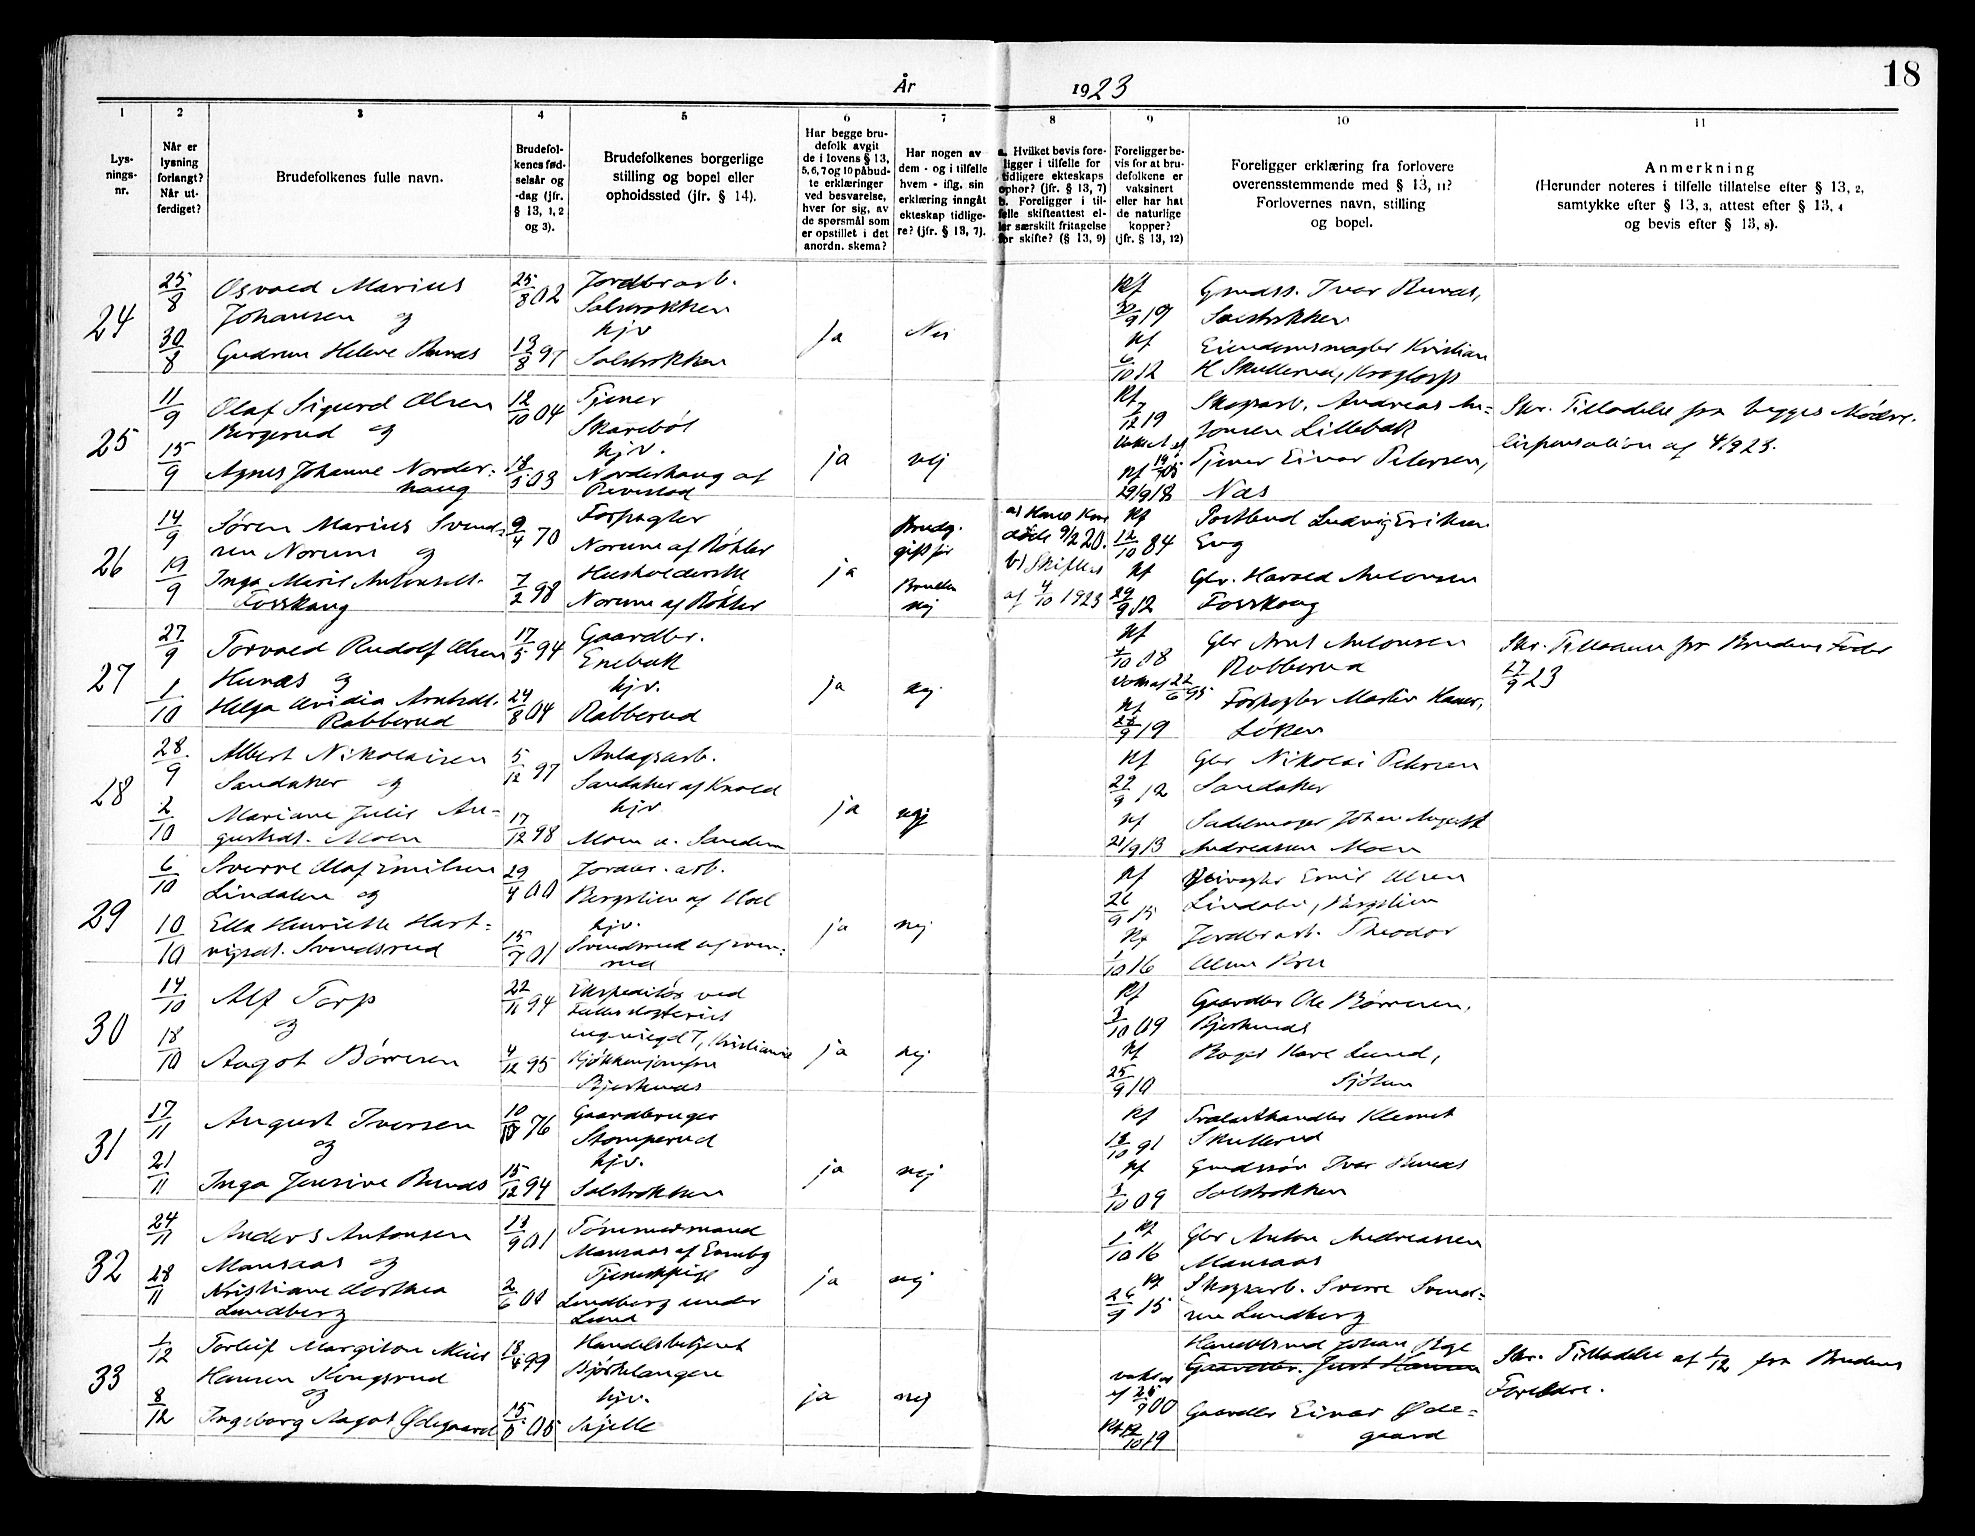 18
År 1923
1
2
3
4
5
6
7
8
9
10
11
Lys-
nings-
nr.
Når er
lysning
forlangt?
Når ut-
ferdiget?
Brudefolkenes fulle navn.
Brudefol-
kenes fød-
selsår og
-dag (jfr.
§ 13, 1, 2
og 3).
Brudefolkenes borgerlige
stilling og bopel eller
opholdssted (jfr. § 14).
Har begge bru-
defolk avgit
de i lovens § 13,
5, 6, 7 og 10 påbud-
te erklæringer
ved besvarelse,
hver for sig, av
de spørsmål som
er opstillet i det
anordn. skema?
Har nogen av
dem - og i tilfelle
hvem - iflg. sin
erklæring inngåt
ekteskap tidlige-
re? (jfr. § 13, 7).
a. Hvilket bevis fore-
ligger i tilfelle for
tidligere ekteskaps
ophør? (jfr. § 13, 7)
b. Foreligger i til-
felle skifteattest el-
ler særskilt fritagelse
for skifte? (§ 13, 9)
Foreligger be-
vis for at bru-
defolkene er
vaksinert
eller har hat
de naturlige
kopper?
(jfr. § 13, 12)
Foreligger erklæring fra forlovere
overensstemmende med § 13, 11?
Forlovernes navn, stilling
og bopel.
Anmerkning
(Herunder noteres i tilfelle tillatelse efter § 13, 2,
samtykke efter § 13, 3, attest efter § 13, 4
og bevis efter § 13, 8).
24
25/8
30/8
Osvald Marius
Johansen og
Gudrun Helene
25/8 02
13/8 97
Jordbrarb.
hjv
Ja
Nei
Rf
30/9 19
Rf
6/10 12
Ivar
Eiendomsmægler Kristian
H Skullerud, Krogtorp
25
11/9
15/9
Olaf Sigurd Olsen
Bergerud og
Agnes Johanne Norder-
haug
12/10 04
18/5 03
Tjener
Skarebøl
hjv.
Norderhaug af
ja
nej
Rf
/12 19
Rf
29/9 18
Skogsarb. Andreas An-
tonsen Lillebæk
Tjener Einar Petersen,
Næs
Skr. Tilladelse fra begges Mødre.
Dispensation af 4/9 23.
26
14/9
19/9
Søren Marius Svend-
sen Norum og
Inga Marie Antonsdt.
Fosshaug
9/4 70
7/2 98
Forpagter
Norum af Røkler
Husholderske
Norum af Røkler
ja
Brudg.
gift før
Bruden
nej
a) Hans Kone
døde 9/2 20.
b) Skifteat
af 4/10 1923
Rf
12/10 84
Rf
29/9 12
Postbud Ludvig Eriksen
Eng
Gbr. Harald Antonsen
Fosshaug
27
27/9
1/10
Torvald Rudolf Olsen
og
Helga Arntsdt.
Rabberud
17/5 94
24/8 04
Gaardbr.
Enebak
hjv.
Rabberud
ja
nej
Rf
1/10 08
22/6 95
Rf
23/9 19
Gbr Arnt Antonsen
Rabberud
Forpagter Martin
Løken
Skr. Tilladelse fra Brudens Fader
27/9 23
28
28/9
2/10
Albert Nikolaisen
Sandaker og
Mariane Julie Au-
gustsdt. Moen
5/12 97
17/12 98
Anlægsarb.
Sandaker af Kvold
hjv.
Moen u. Sandem
ja
nej
Rf
29/9 12
Rf
21/9 13
Gbr Nikolai Petersen
Sandaker
Sadelmager Johan August
Andreassen Moen
29
6/10
10/10
Sverre Olaf Emilsen
Lindalen og
Ella Henriette Hart-
vigsdt. Svendsrud
29/4 00
15/7 01
Jordbr. arb.
Bergslien af Hol
hjv.
Svendsrud af
rud
ja
nej
Rf
26/9 15
Rf
1/10 16
Emil Olsen
Lindalen, Bergslien
Jordbrarb. Theodor
Olsen
30
14/10
18/10
Alf Torp
og
Aagot Børresen
22/11 94
4/12 95
Ekspeditør ved
Kristiania
Kjøkkenjomfru
Bjerknæs
ja
nej
Rf
3/10 09
Rf
25/9 10
Gaardbr Ole Børresen,
Bjerknæs
Lund,
31
17/11
21/11
August Iversen
og
Inga Jensine
10/10 76
15/12 94
Gaardbruger
Stomperud
hjv.
ja
nej
Rf
13/10 91
Rf
3/10 09
Klemet
Skullerud
Ivar
32
24/11
28/11
Anders Antonsen
Mansaas og
Kristiane Dorthea
Lundberg
13/9 01
2/6 00
Tømmermand
Mansaas af Evenby
Tjenestepige
Lundberg under
Lund
ja
nej
Rf
1/10 16
Rf
26/9 15
Gbr Anton Andreassen
Mansaas
Skogsarb. Sverre Svend-
sen Lundberg
33
1/12
8/12
Torleif Margiton
Hansen Kongsrud
og
Ingeborg Aagot Ødegaard
18/4 99
15/ 05
Handelsbetjent
Bjørkelangen
hjv.
Skjelle
ja
nej
25/9 00
Rf
/10 19
Johan
Gaardbr.
Gaardbr Einar Øde-
gaard
Skr. Tilladelse af 1/12 fra Brudens
Forældre.